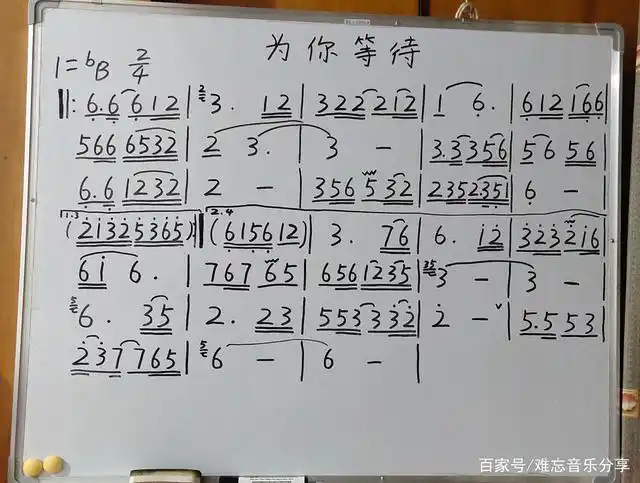 为你等待
1=ᵇB 2/4
‖: 6̣.6̣ 6̣12 | ²3. 12 | 322 212 | 1 6̣. | 6̣12 16̣6̣
566 6532 | 2 3. | 3 - | 3.3 356 | 56 56
6̣.6̣ 1232 | 2 - | 356 532 | 235 2351 | 6̣ -
1.3
2.4
(2̇1̇3̇25365): ‖ (6̣15̣6̣12) | 3. 76 | 6. 1̇2̇ | 3̇2̇3̇ 2̇1̇6
61̇ 6. | 767 65 | 656 1235 | ³⁵3 - | 3 -
⁵6. 35 | 2. 23 | 553 332̇ | 2̇ - ᵛ | 5.5 53
2̇3̇7 765 | ⁵6 - | 6 - |
百家号/难忘音乐分享